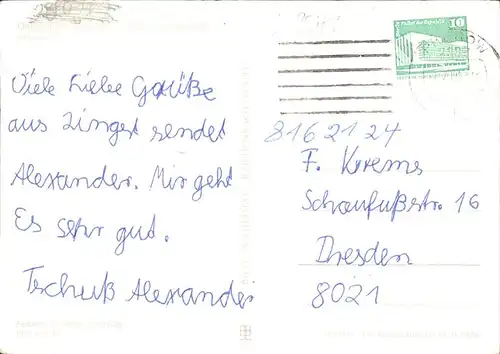 Viele Liebe Gaüße
aus Zingst sendet
Alexander. Mir geht
Es sehr gut.
Tschuß Alexander
10
81621 24
F. Krems
Schaufußstr. 16
Dresden
8021